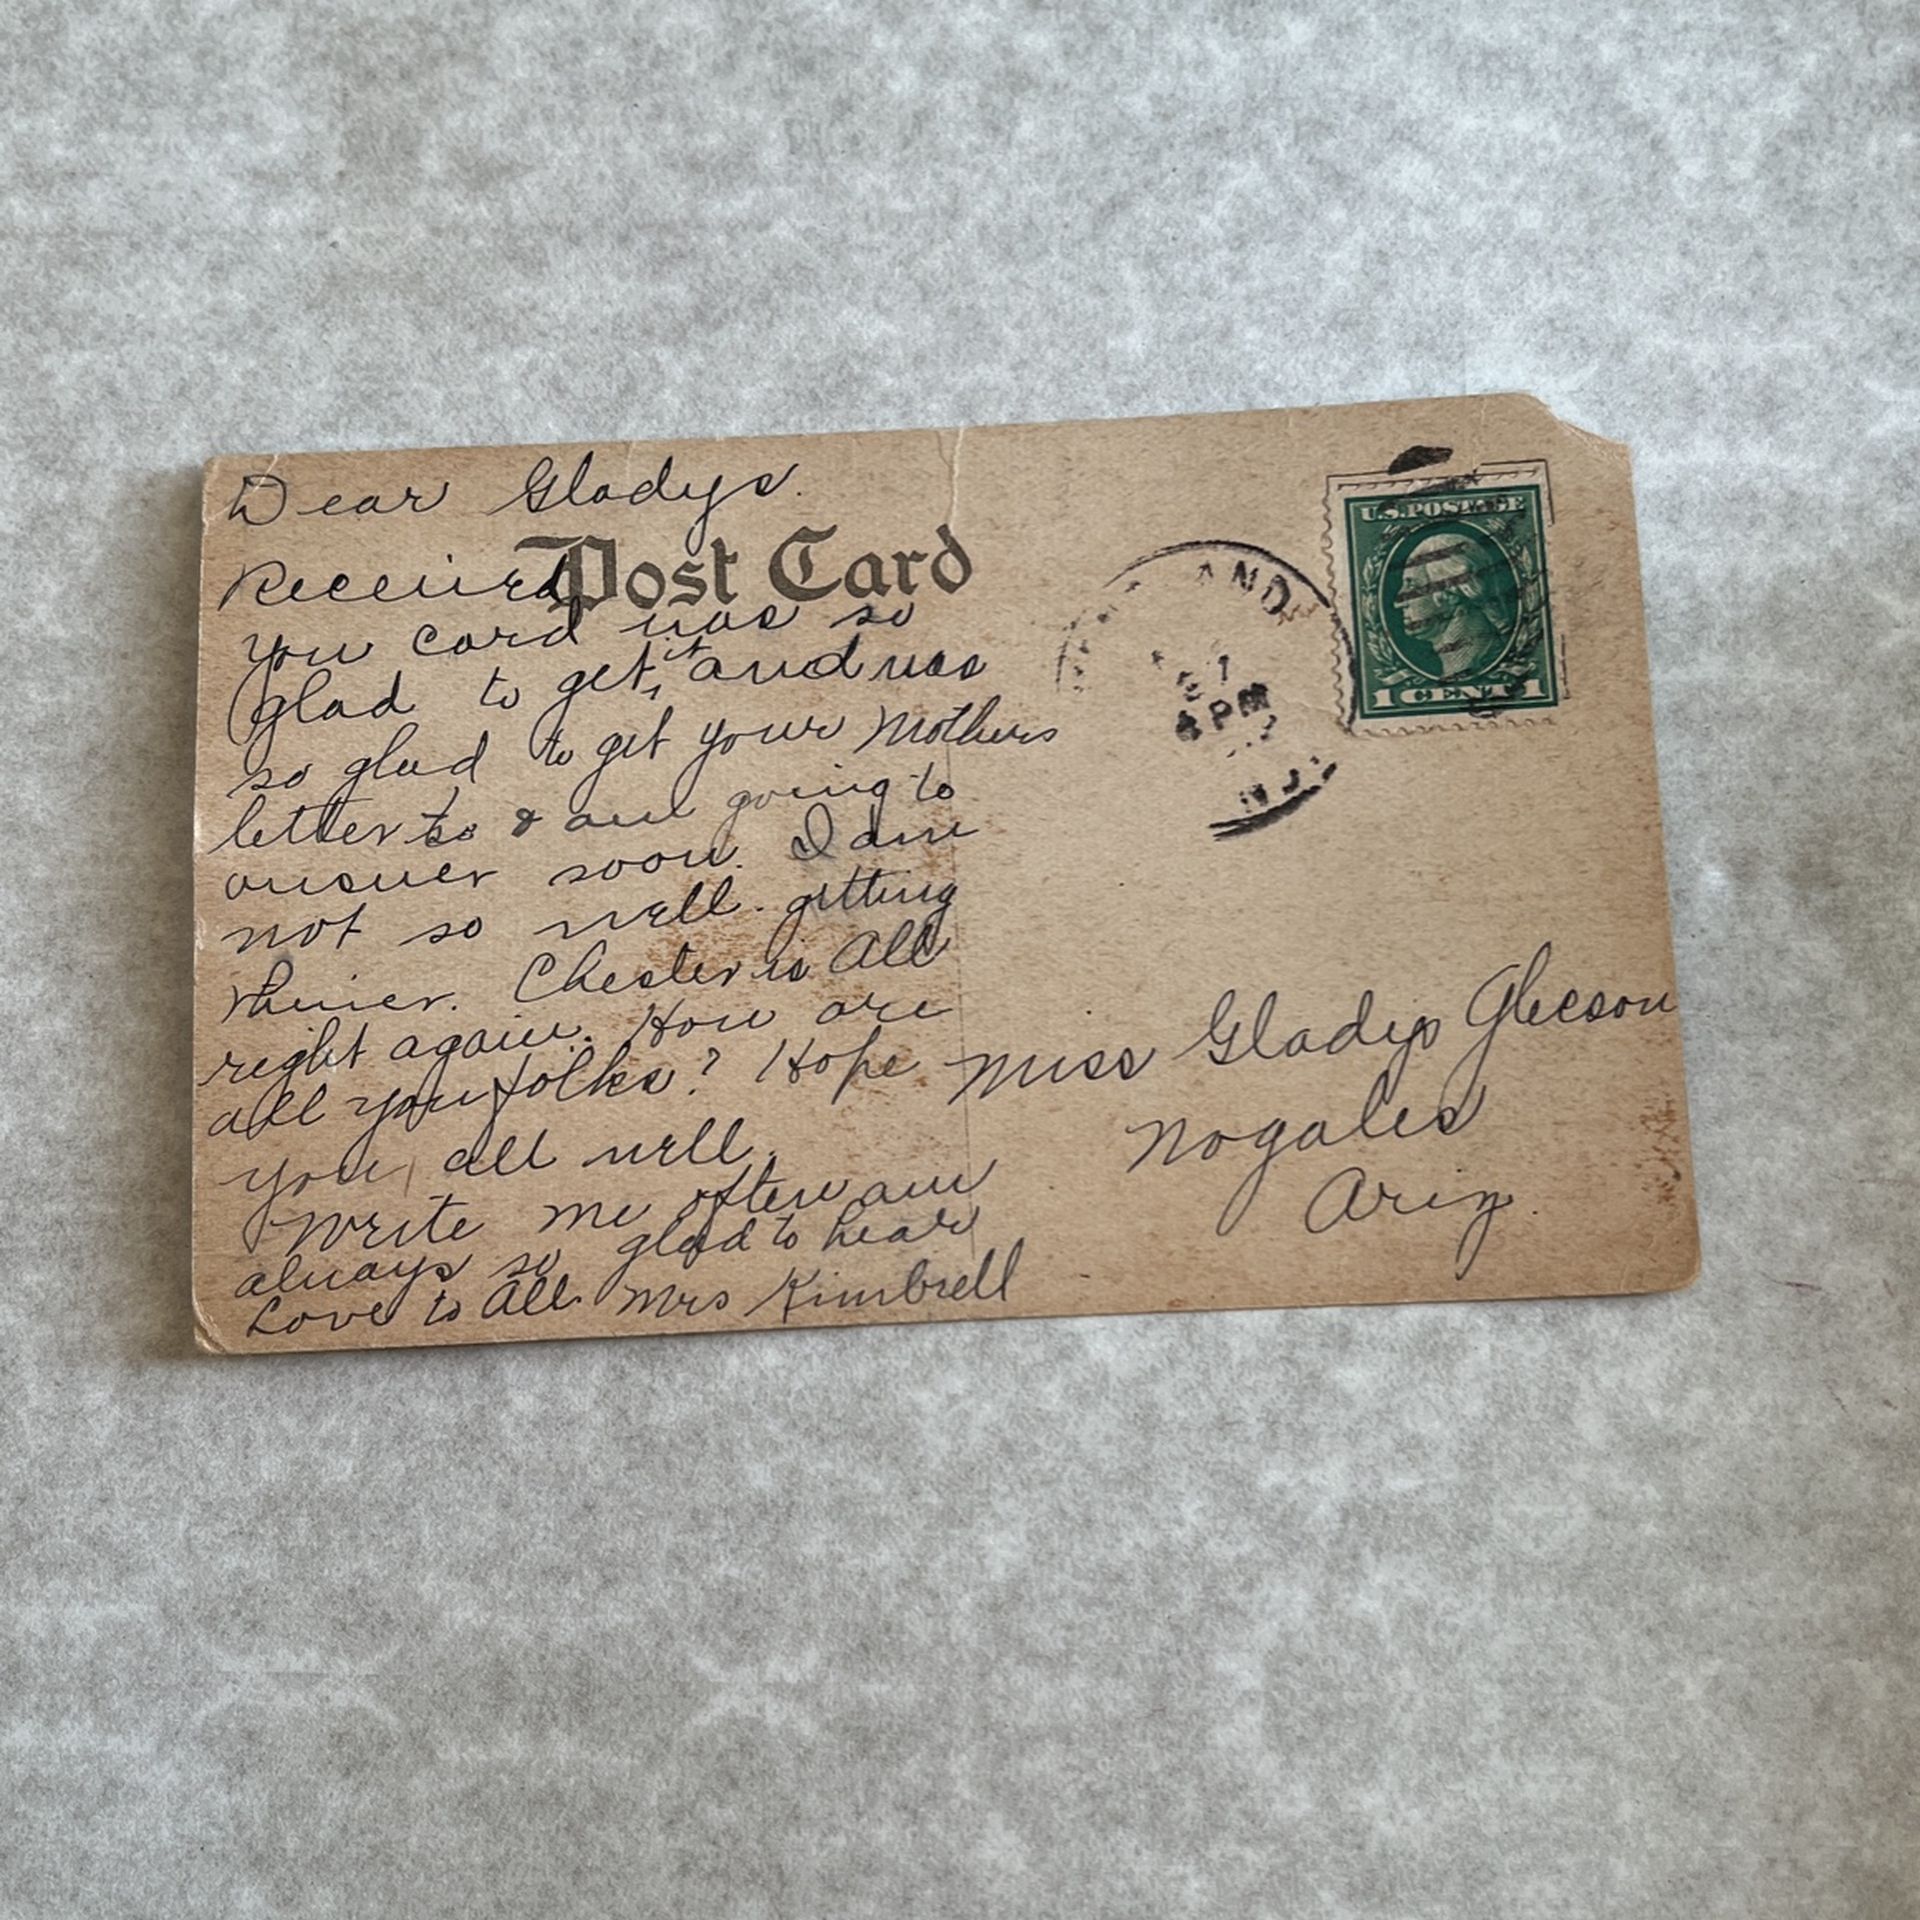 Dear Gladys.
Post Card
Received
you card was so
glad to get it and was
so glad to get your Mothers
letter to & am going to
answer soon. I am
not so well. getting
thiner. Chester is All
right again. How are
all you folks? Hope
you all well.
Write me often am
always so glad to hear
Love to All Mrs Kimbrell
AND
21
4 PM
N.J.
U.S. POSTAGE
1 CENT 1
Miss Gladys Gleeson
Nogales
Ariz.